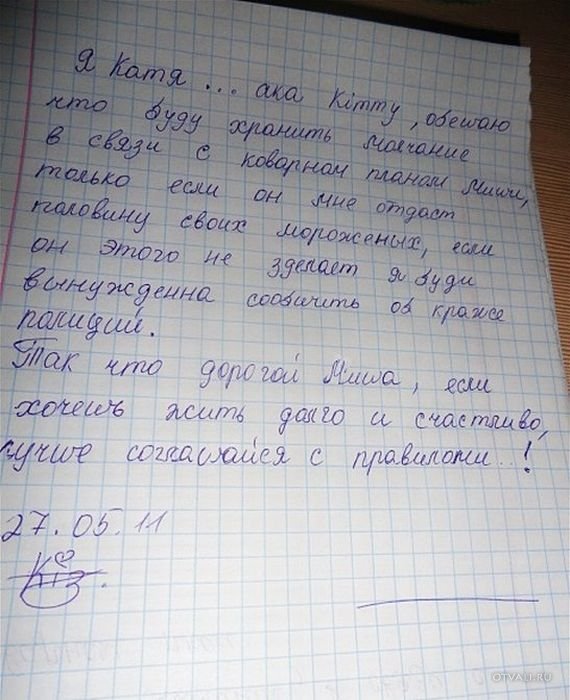 Я Катя ... ака Kimmy, обещаю
что буду хранить молчание
в связи с коварном планом Миши,
только если он мне отдаст
половину своих мороженых, если
он этого не зделает я буди
вынужденна сообичить об краже
полиций.
Так что дорогой Миша, если
хочешь жить долго и счастливо,
лучше соглашайся с правилами..!
27.05.11
OTVALI.RU